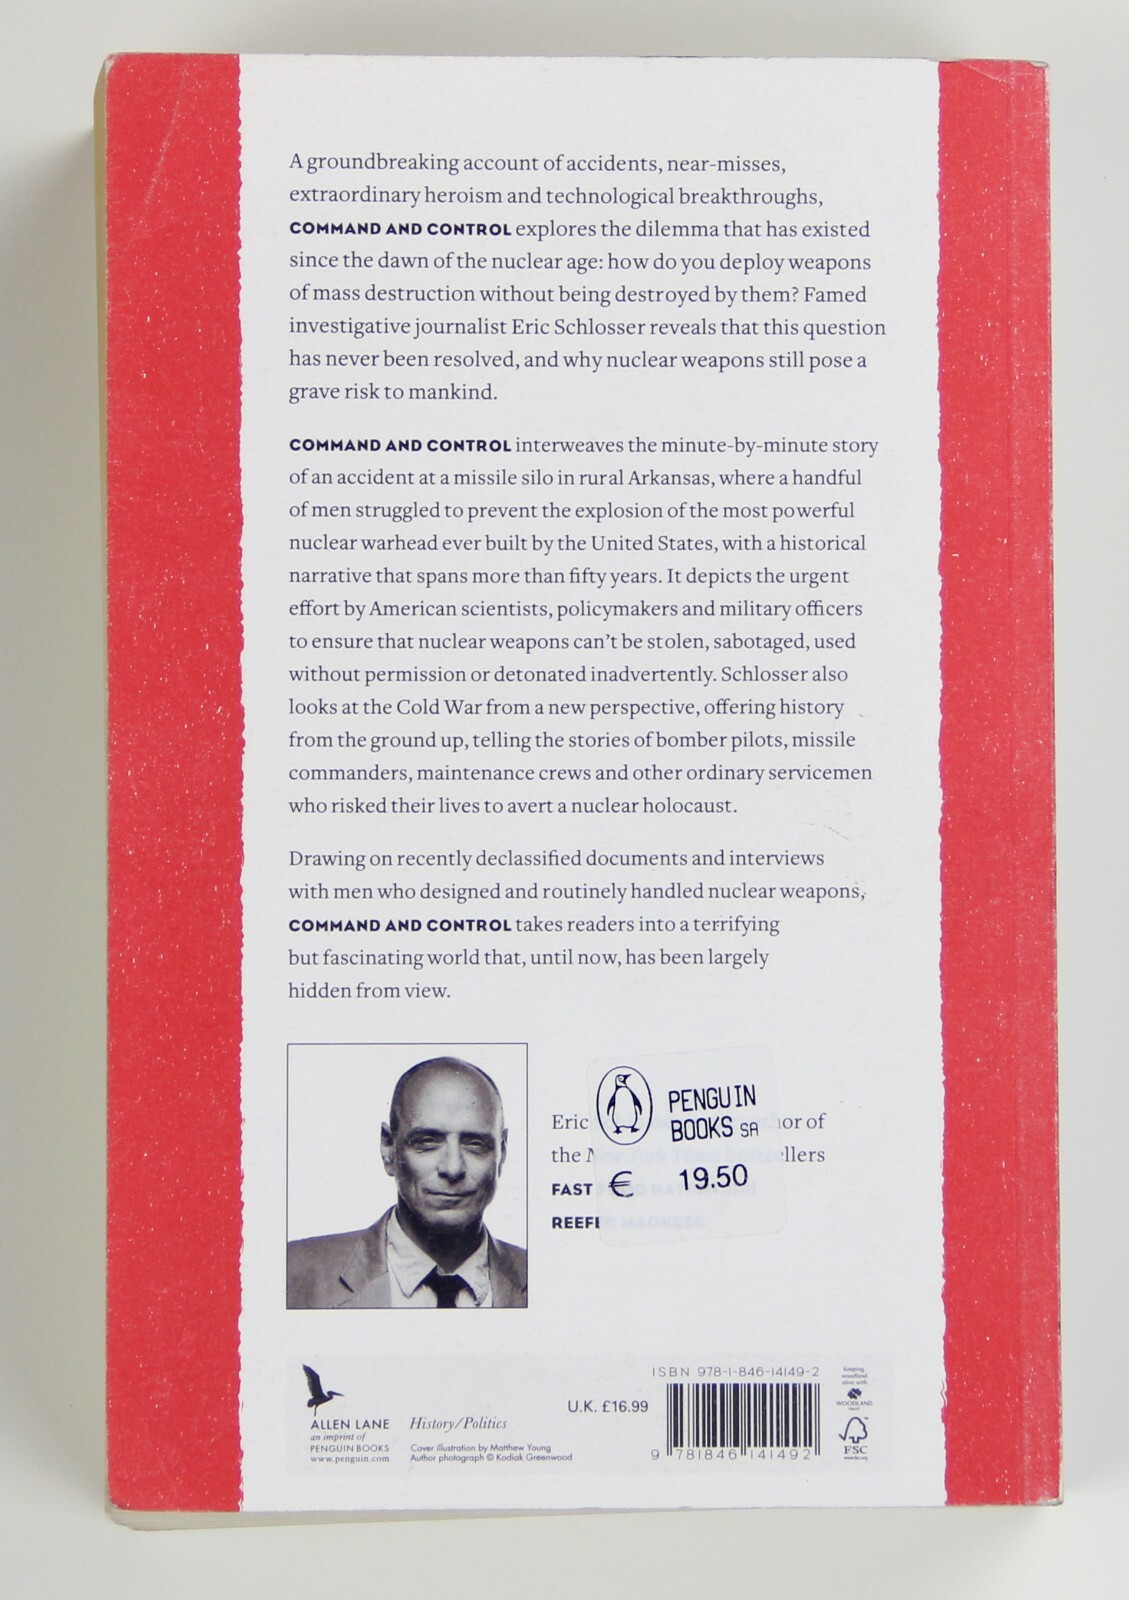 A groundbreaking account of accidents, near-misses,
extraordinary heroism and technological breakthroughs,
COMMAND AND CONTROL explores the dilemma that has existed
since the dawn of the nuclear age: how do you deploy weapons
of mass destruction without being destroyed by them? Famed
investigative journalist Eric Schlosser reveals that this question
has never been resolved, and why nuclear weapons still pose a
grave risk to mankind.
COMMAND AND CONTROL interweaves the minute-by-minute story
of an accident at a missile silo in rural Arkansas, where a handful
of men struggled to prevent the explosion of the most powerful
nuclear warhead ever built by the United States, with a historical
narrative that spans more than fifty years. It depicts the urgent
effort by American scientists, policymakers and military officers
to ensure that nuclear weapons can't be stolen, sabotaged, used
without permission or detonated inadvertently. Schlosser also
looks at the Cold War from a new perspective, offering history
from the ground up, telling the stories of bomber pilots, missile
commanders, maintenance crews and other ordinary servicemen
who risked their lives to avert a nuclear holocaust.
Drawing on recently declassified documents and interviews
with men who designed and routinely handled nuclear weapons,
COMMAND AND CONTROL takes readers into a terrifying
but fascinating world that, until now, has been largely
hidden from view.
Eric of
the New York Times bestsellers
FAST FOOD NATION AND
REEFER MADNESS.
PENGUIN
BOOKS SA
€ 19.50
ALLEN LANE
an imprint of
PENGUIN BOOKS
www.penguin.com
History/Politics
Cover illustration by Matthew Young
Author photograph © Kodiak Greenwood
U.K. £16.99
ISBN 978-1-846-14149-2
9 781846 141492
Keeping
woodland
alive with
WOODLAND
TRUST
FSC